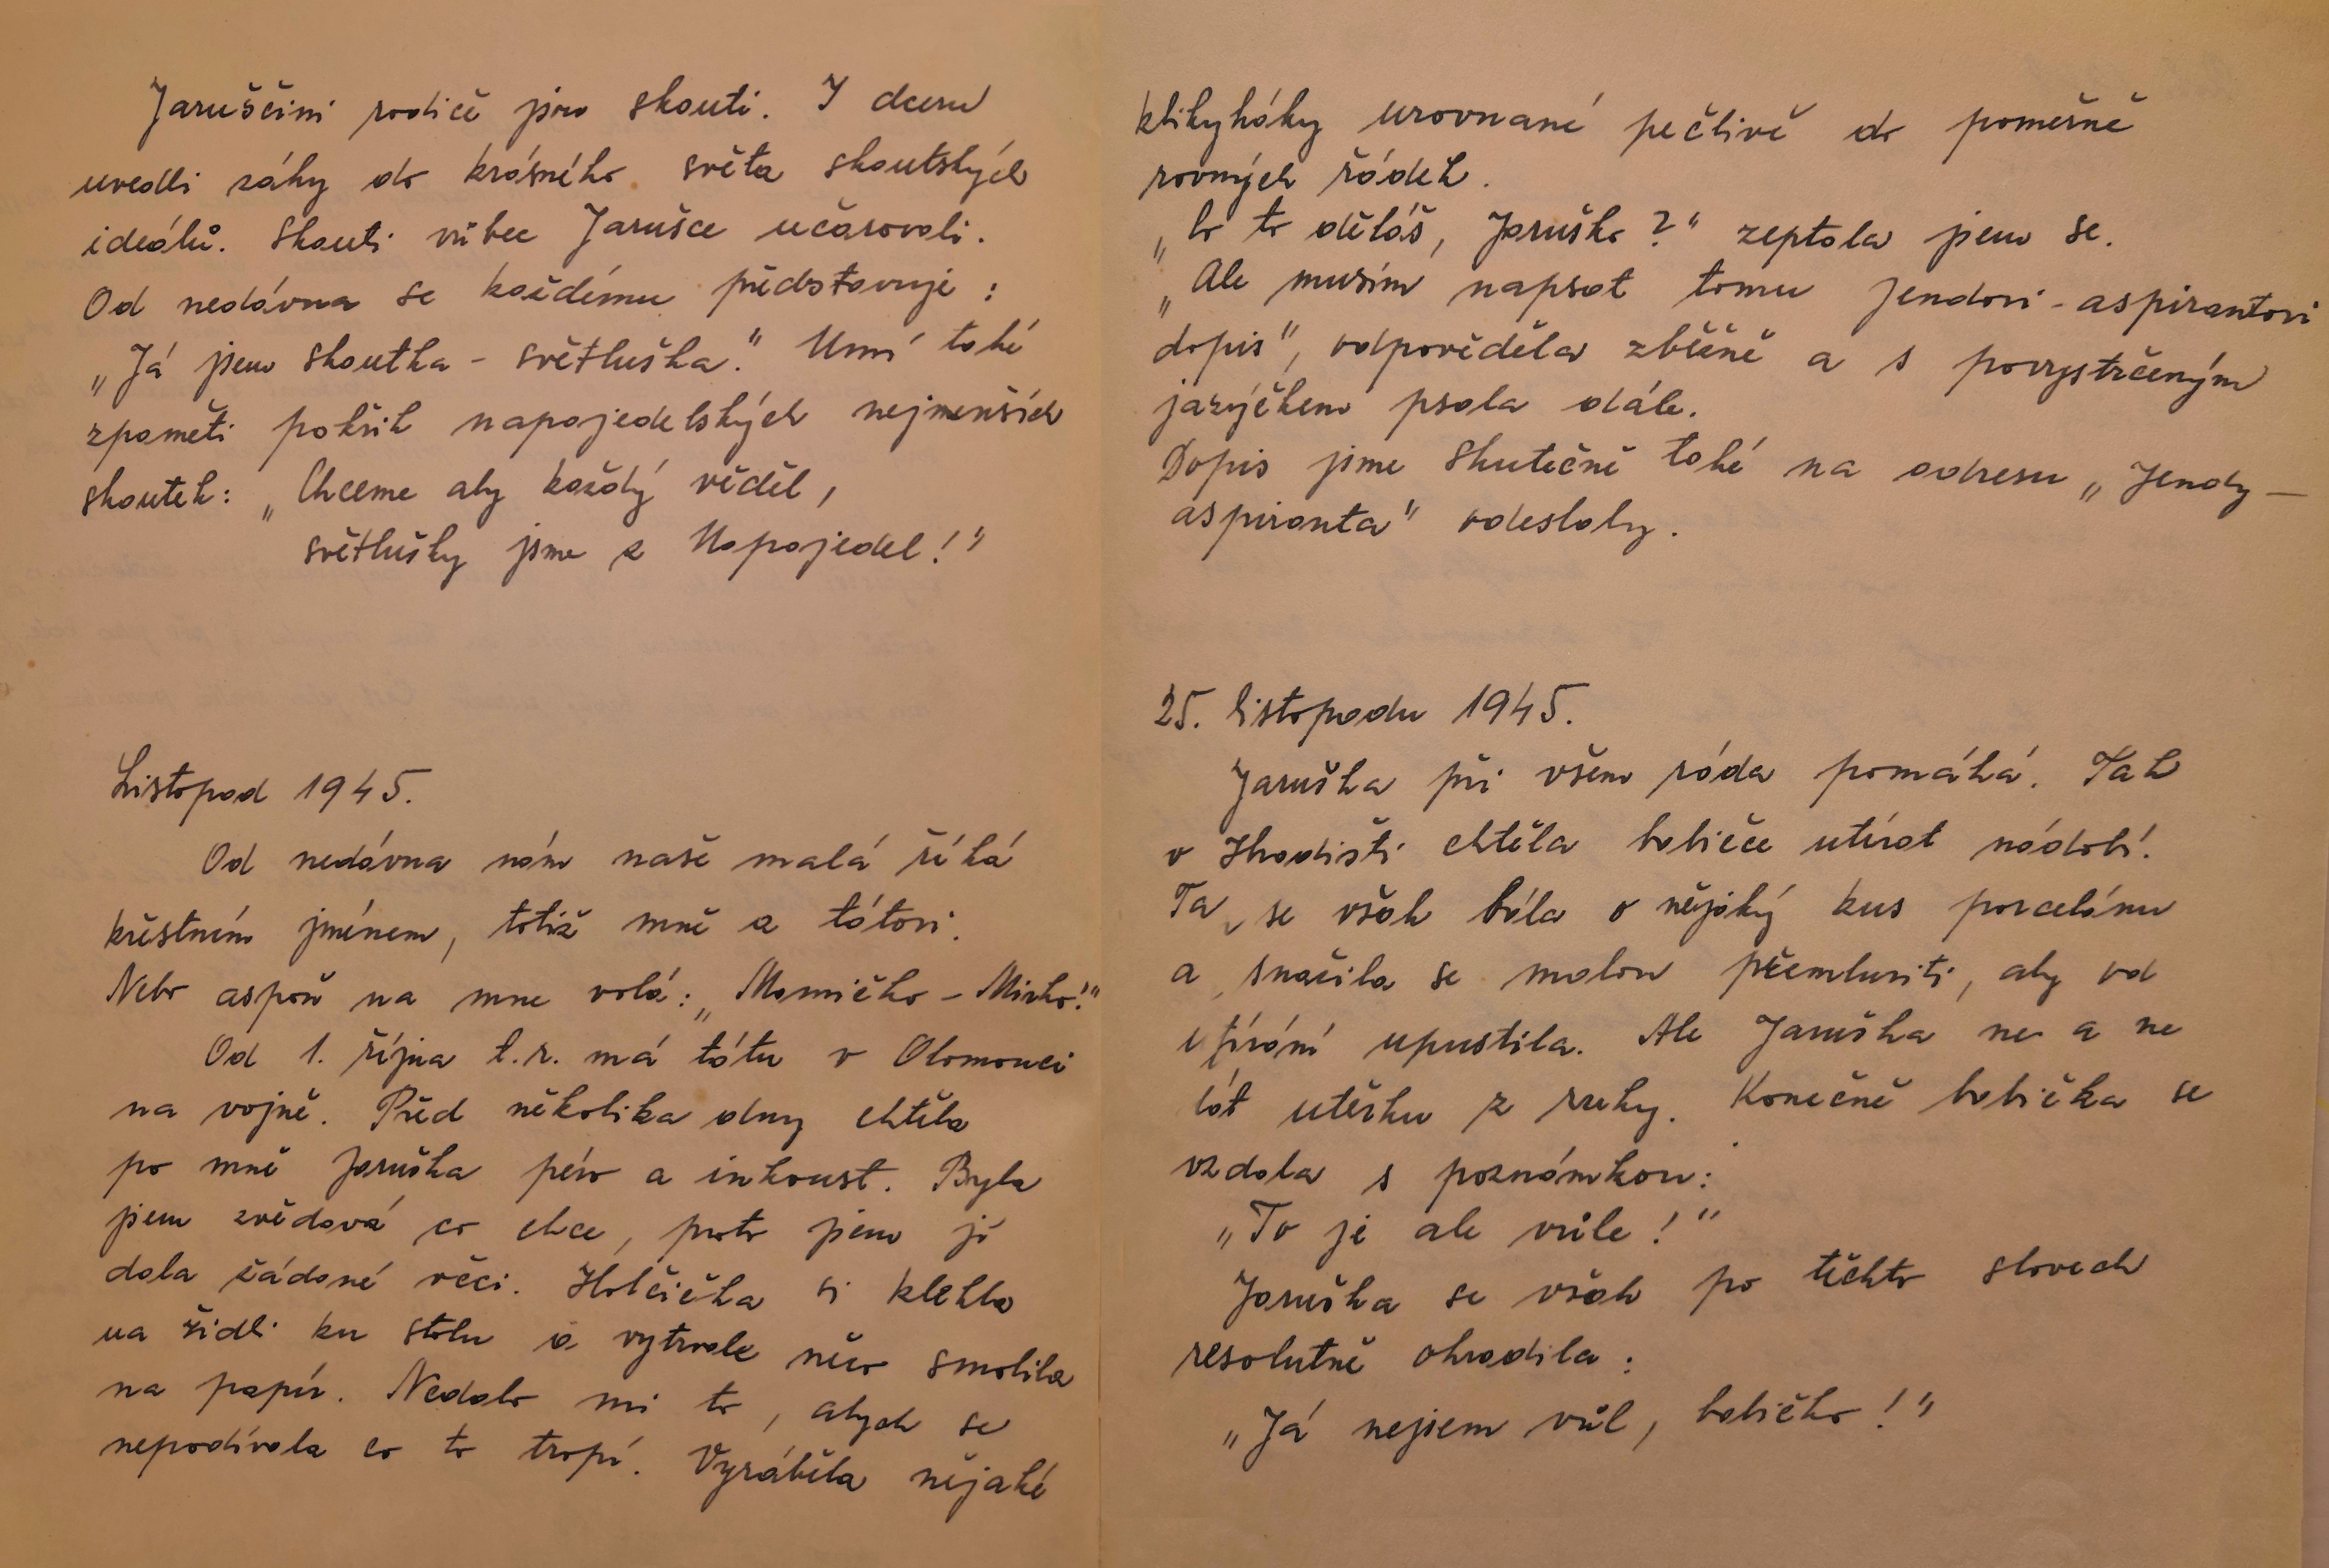 Jaruščini rodiče jsou skouti. I dceru
uvedli záhy do krásného světa skoutských
ideálů. Skouti vůbec Jarušce učarovali.
Od nedávna se každému představuje:
„Já jsem skoutka - světluška." Umí také
zpaměti pokřik napajedelských nejmenších
skoutek: „Chceme aby každý věděl,
světlušky jsme z Napajedel!"
Listopad 1945.
Od nedávna nám naše malá říká
křestním jménem, totiž mně a tátovi.
Nebo aspoň na mne volá: „Mamičko - Mirko!"
Od 1. října t.r. má tátu v Olomouci
na vojně. Před několika dny chtěla
po mně Jaruška péro a inkoust. Byla
jsem zvědavá co chce, proto jsem jí
dala žádané věci. Holčička si klekla
na židli ku stolu a vytrvale něco smolila
na papír. Nedalo mi to, abych se
nepodívala co to tropí. Vyráběla nějaké
klikyháky urovnané pečlivě do poměrně
rovných řádek.
„Co to děláš, Jaruško?" zeptala jsem se.
„Ale musím napsat tomu Jendovi-aspirantovi
dopis", odpověděla zběžně a s povystrčeným
jazýčkem psala dále.
Dopis jsme skutečně také na adresu „Jendy-
aspiranta" odeslaly.
25. listopadu 1945.
Jaruška při všem ráda pomáhá. Tak
v Hradišti chtěla babičce utírat nádobí.
Ta se však bála o nějaký kus porcelánu
a snažila se malou přemluviti, aby od
utírání upustila. Ale Jaruška ne a ne
dát utěrku z ruky. Konečně babička se
vzdala s poznámkou:
„To je ale vůle!"
Jaruška se však po těchto slovech
resolutně ohradila:
„Já nejsem vůl, babičko!"